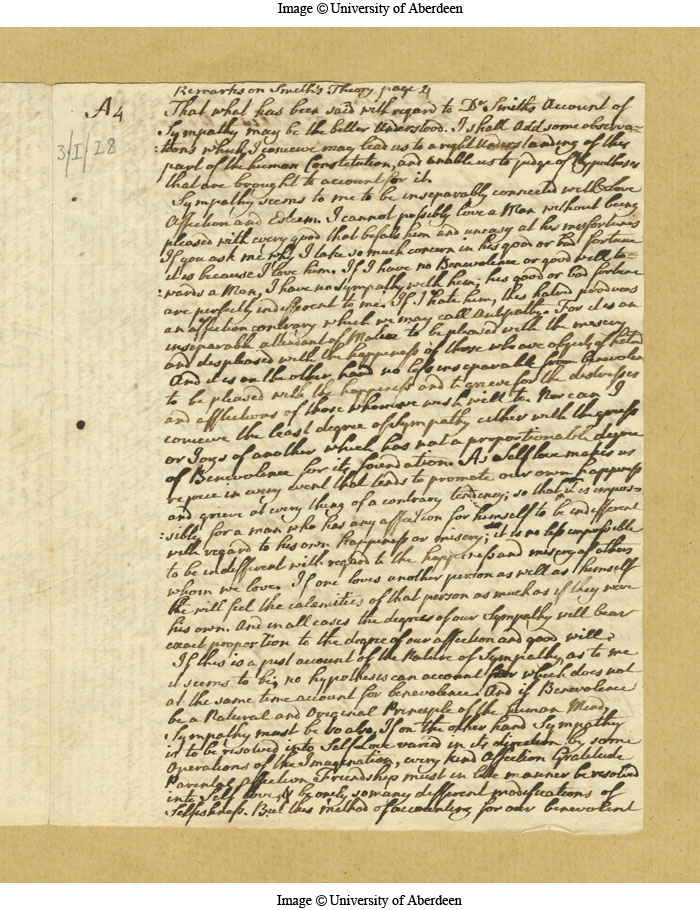 Image © University of Aberdeen
Remarks on Smith's Theory page 4
A4
3/I/28
That what has been said with regard to Dr Smiths Account of
Sympathy may be the better Understood. I shall Add some observa-
:tions which I conceive may lead us to a right Understanding of this
part of the human Constitution, and enable us to judge of Hypotheses
that are brought to account for it.
Sympathy seems to me to be inseparably connected with Love
Affection and Esteem. I cannot possibly love a Man without being
pleased with every good that befals him and uneasy at his misfortunes
If you ask me why I take so much concern in his good or bad fortune
it is because I love him. If I have no Benevolence or good will to-
:wards a Man, I have no Sympathy with him; his good or bad fortune
are perfectly indifferent to me. If I hate him, this hatred produces
an affection contrary which we may call Antipathy. For it is an
inseparable attendant of Malice to be pleased with the misery
and displeased with the happiness of those who are objects of hatred
And it is on the other hand no less inseparable from Benevolence
to be pleased with the happiness and to grieve for the distresses
and afflictions of those whom we wish well to. Nor can I
conceive the least degree of Sympathy either with the griefs
or Joys of another which has not a proportionable degree
of Benevolence for its foundation. As Self love makes us
rejoice in every event that tends to promote our own happiness
and grieve at every thing of a contrary tendency; so that it is impos-
:sible for a man who has any affection for himself to be indifferent
with regard to his own happiness or misery; it is no less impossible
to be indifferent with regard to the happiness and misery of others
whom we love. If one loves another person as well as himself
he will feel the calamities of that person as much as if they were
his own. And in all cases the degrees of our Sympathy will bear
exact proportion to the degree of our affection and good will.
If this is a just account of the Nature of Sympathy, as to me
it seems to be; no hypothesis can account for which does not
at the same time account for benevolence. And if Benevolence
be a Natural and Original Principle of the human Mind,
Sympathy must be so also. If on the other hand Sympathy
is to be resolved into Self Love varied in its direction by some
Operations of the Imagination, every kind Affection Gratitude
Parental Affection Friendship must in like manner be resolved
into Self Love, & be only so many different modifications of
Selfishness. But this method of accounting for our benevolent
Image © University of Aberdeen